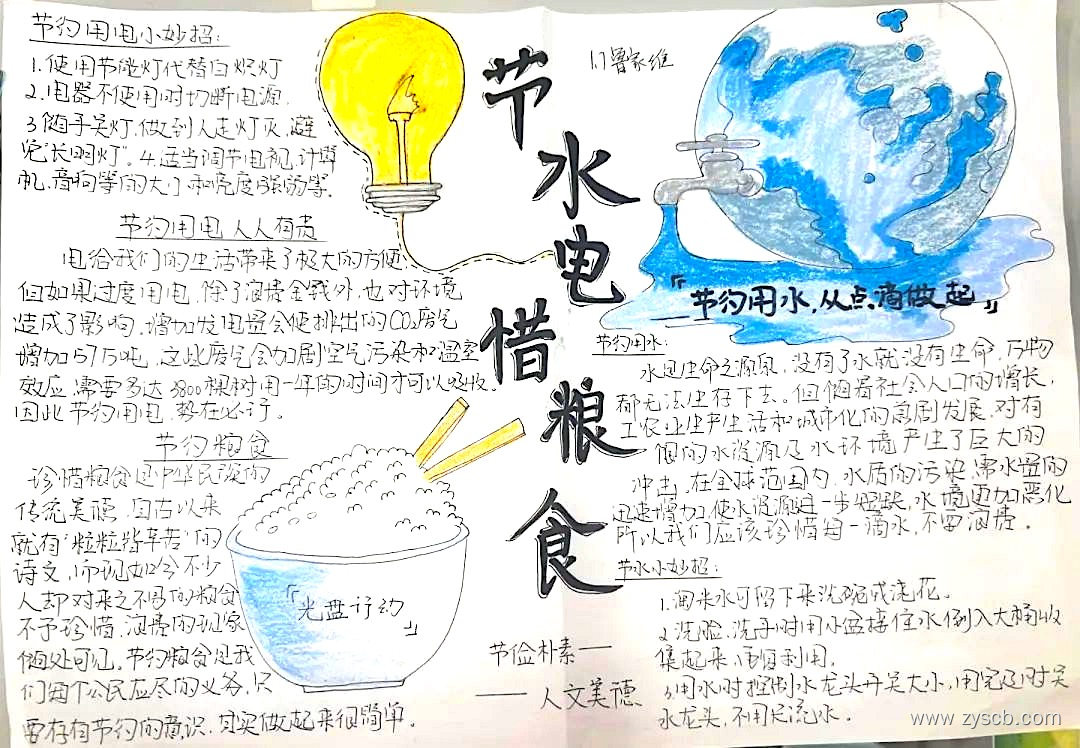 节约用电小妙招:
1.使用节能灯代替白炽灯
2.电器不使用时切断电源.
3随手关灯.做到人走灯灭,避
免"长明灯"。4.适当调节电视.计算
机.音响等的大小和亮度强弱等.
节约用电 人人有责
电给我们的生活带来了极大的方便.
但如果过度用电.除了浪费金钱外.也对环境
造成了影响.增加发电量会使排出的CO2废气
增加 万吨.这些废气会加剧空气污染和温室
效应.需要多达3800棵树用一年的时间才可以吸收.
因此节约用电.势在必行。
节约粮食
珍惜粮食是中华民族的
传统美德.自古以来
就有"粒粒皆辛苦"的
诗文,而现如今不少
人却对来之不易的粮食
不予珍惜,浪费的现象
随处可见。节约粮食是我
们每个公民应尽的义务,只
要存有节约的意识.其实做起来很简单.
『光盘行动』
节水电惜粮食
节俭朴素——
——人文美德
1.1鲁家维
『节约用水,从点滴做起』
节约用水:
水是生命之源泉.没有了水就没有生命.万物
都无法生存下去。但随着社会人口的增长,
工农业生产生活和城市化的急剧发展.对有
限的水资源及水环境产生了巨大的
冲击.在全球范围内.水质的污染.需水量的
迅速增加.使水资源进一步短缺.水境更加恶化
所以我们应该珍惜每一滴水,不要浪费。
节水小妙招:
1.淘米水可留下来洗碗或浇花。
2.洗脸.洗手时用小盆接住水倒入大桶收
集起来.循环利用.
3.用水时控制水龙头开关大小,用完及时关
水龙头,不用长流水.
www.zyscb.com